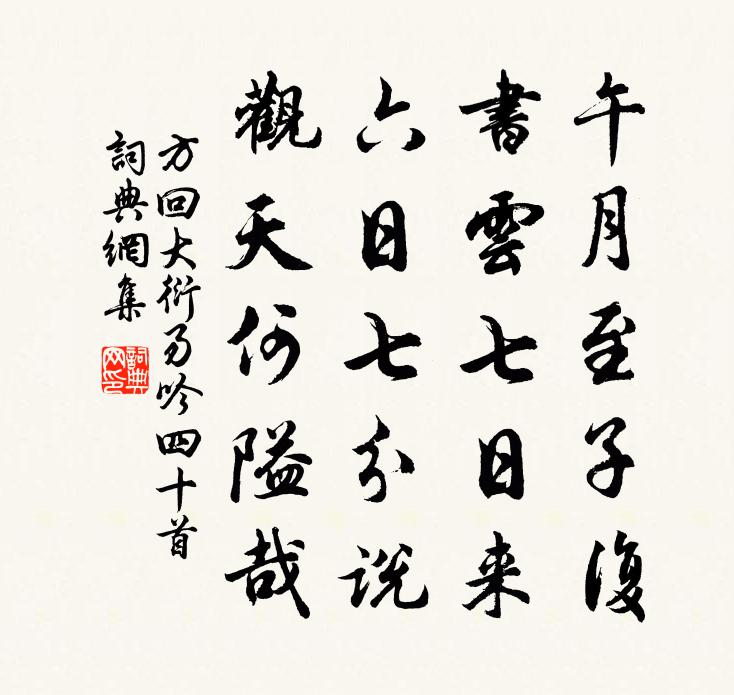 午月至子復
書雲七日来
六日七分説
觀天何隘哉
方回大衍易吟四十首
詞典網集
詞典网印